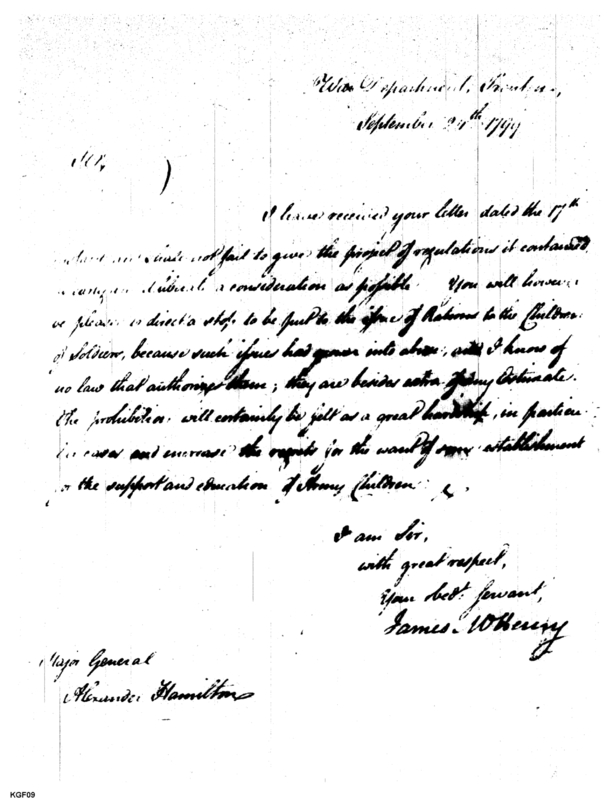 War Department, Trenton,
September 24th 1799
Sir,
I have received your letter dated the 17th
instant and shall not fail to give the project of regulations it contained
deliberate a consideration as possible. You will however
be pleased to direct a stop to be put to the issue of Rations to the Children
of Soldiers, because such issues had grown into abuse, and I know of
no law that authorizes them; they are besides extra of any Estimate.
The prohibition will certainly be felt as a great hardship, in particu-
lar cases and increase the regrets for the want of some establishment
for the support and education of Army Children.
I am Sir,
with great respect,
Your obedt. Servant,
James McHenry
Major General
Alexander Hamilton
KGF09